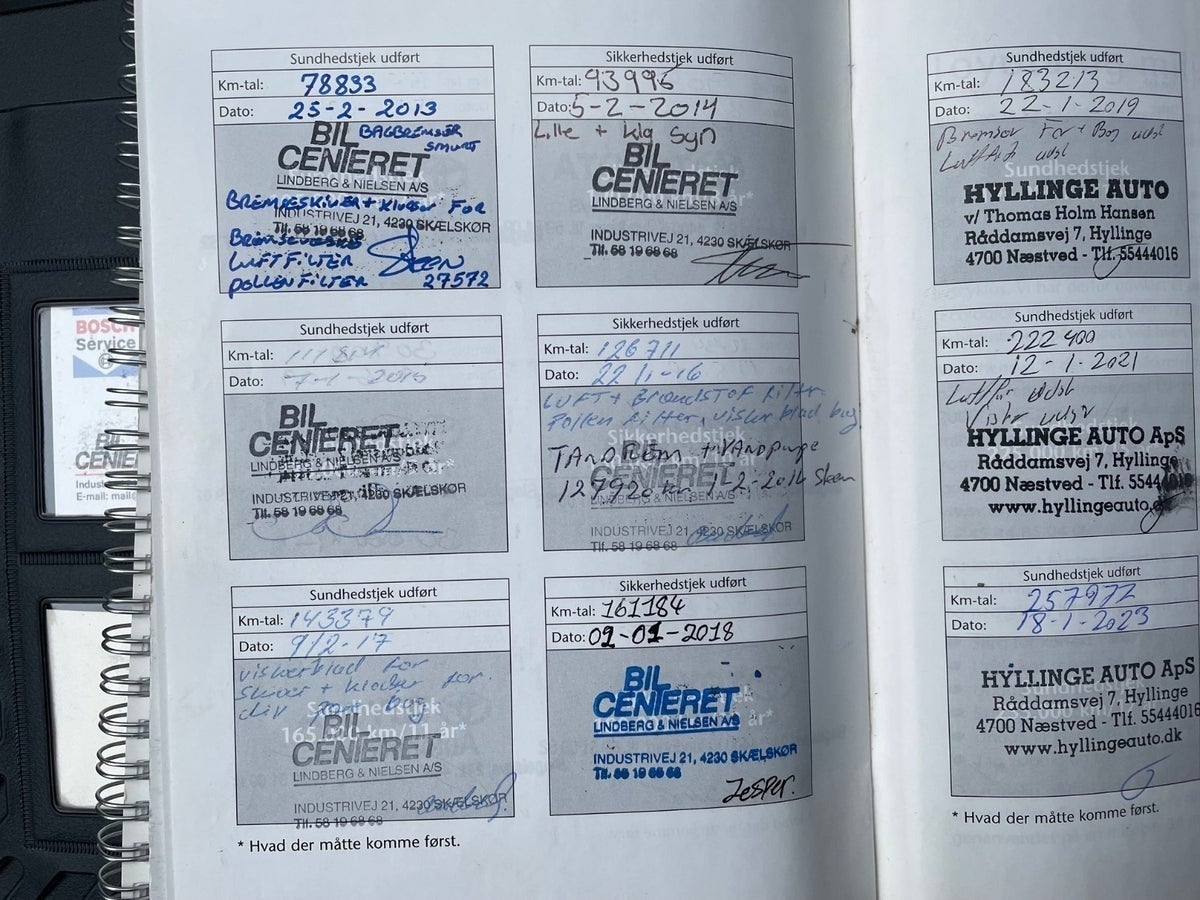 Sundhedstjek udført
Km-tal: 78833
Dato: 25-2-2013
BIL BAGBREMSER
SMURT
CENTERET
LINDBERG & NIELSEN A/S
BREMSESKIVER + KLODSER FOR
INDUSTRIVEJ 21, 4230 SKÆLSKØR
Tlf. 58 19 68 68
LUFTFILTER Steen
POLLENFILTER 27572
Sikkerhedstjek udført
Km-tal: 93996
Dato: 5-2-2014
Lille + klg syn
BIL
CENTERET
LINDBERG & NIELSEN A/S
INDUSTRIVEJ 21, 4230 SKÆLSKØR
Tlf. 58 19 68 68
Sundhedstjek udført
Km-tal: 183213
Dato: 22-1-2019
Bremser For + Bag udst
Luftfilt udst
Sundhedstjek
HYLLINGE AUTO
v/ Thomas Holm Hansen
Råddamsvej 7, Hyllinge
4700 Næstved - Tlf. 55444016
Sundhedstjek udført
Km-tal:
Dato: 7-1-2015
BIL
CENTERET
LINDBERG & NIELSEN A/S
INDUSTRIVEJ 21, 4230 SKÆLSKØR
Tlf. 58 19 68 68
Sikkerhedstjek udført
Km-tal: 126711
Dato: 22/1-16
LUFT + BrændSTOF filter
Pollen filter, visker blad bag
Sikkerhedstjek
TANDREM + VANDpumpe
129920 km 1-2-2016 Steen
CENTERET
LINDBERG & NIELSEN A/S
INDUSTRIVEJ 21, 4230 SKÆLSKØR
Tlf. 58 19 68 68
Sundhedstjek udført
Km-tal: 222400
Dato: 12-1-2021
Luftfilt udst
Visker udst
HYLLINGE AUTO ApS
Råddamsvej 7, Hyllinge
4700 Næstved - Tlf. 55444016
www.hyllingeauto.dk
Sundhedstjek udført
Km-tal: 143379
Dato: 9/2-17
viskerblad for
skiver + klodser for
div pære bag
Sundhedstjek
165.000 km/11 år*
BIL
CENTERET
LINDBERG & NIELSEN A/S
INDUSTRIVEJ 21, 4230 SKÆLSKØR
Tlf. 58 19 68 68
Sikkerhedstjek udført
Km-tal: 161184
Dato: 09-01-2018
BIL
CENTERET
LINDBERG & NIELSEN A/S
INDUSTRIVEJ 21, 4230 SKÆLSKØR
Tlf. 58 19 68 68
Jesper.
Sundhedstjek udført
Km-tal: 257972
Dato: 18-1-2023
Sundhedstjek
HYLLINGE AUTO ApS
Råddamsvej 7, Hyllinge
4700 Næstved - Tlf. 55444016
www.hyllingeauto.dk
* Hvad der måtte komme først.
* Hvad der måtte komme først.
BOSCH
Service
BIL
CENTE
Indust
E-mail: mail@